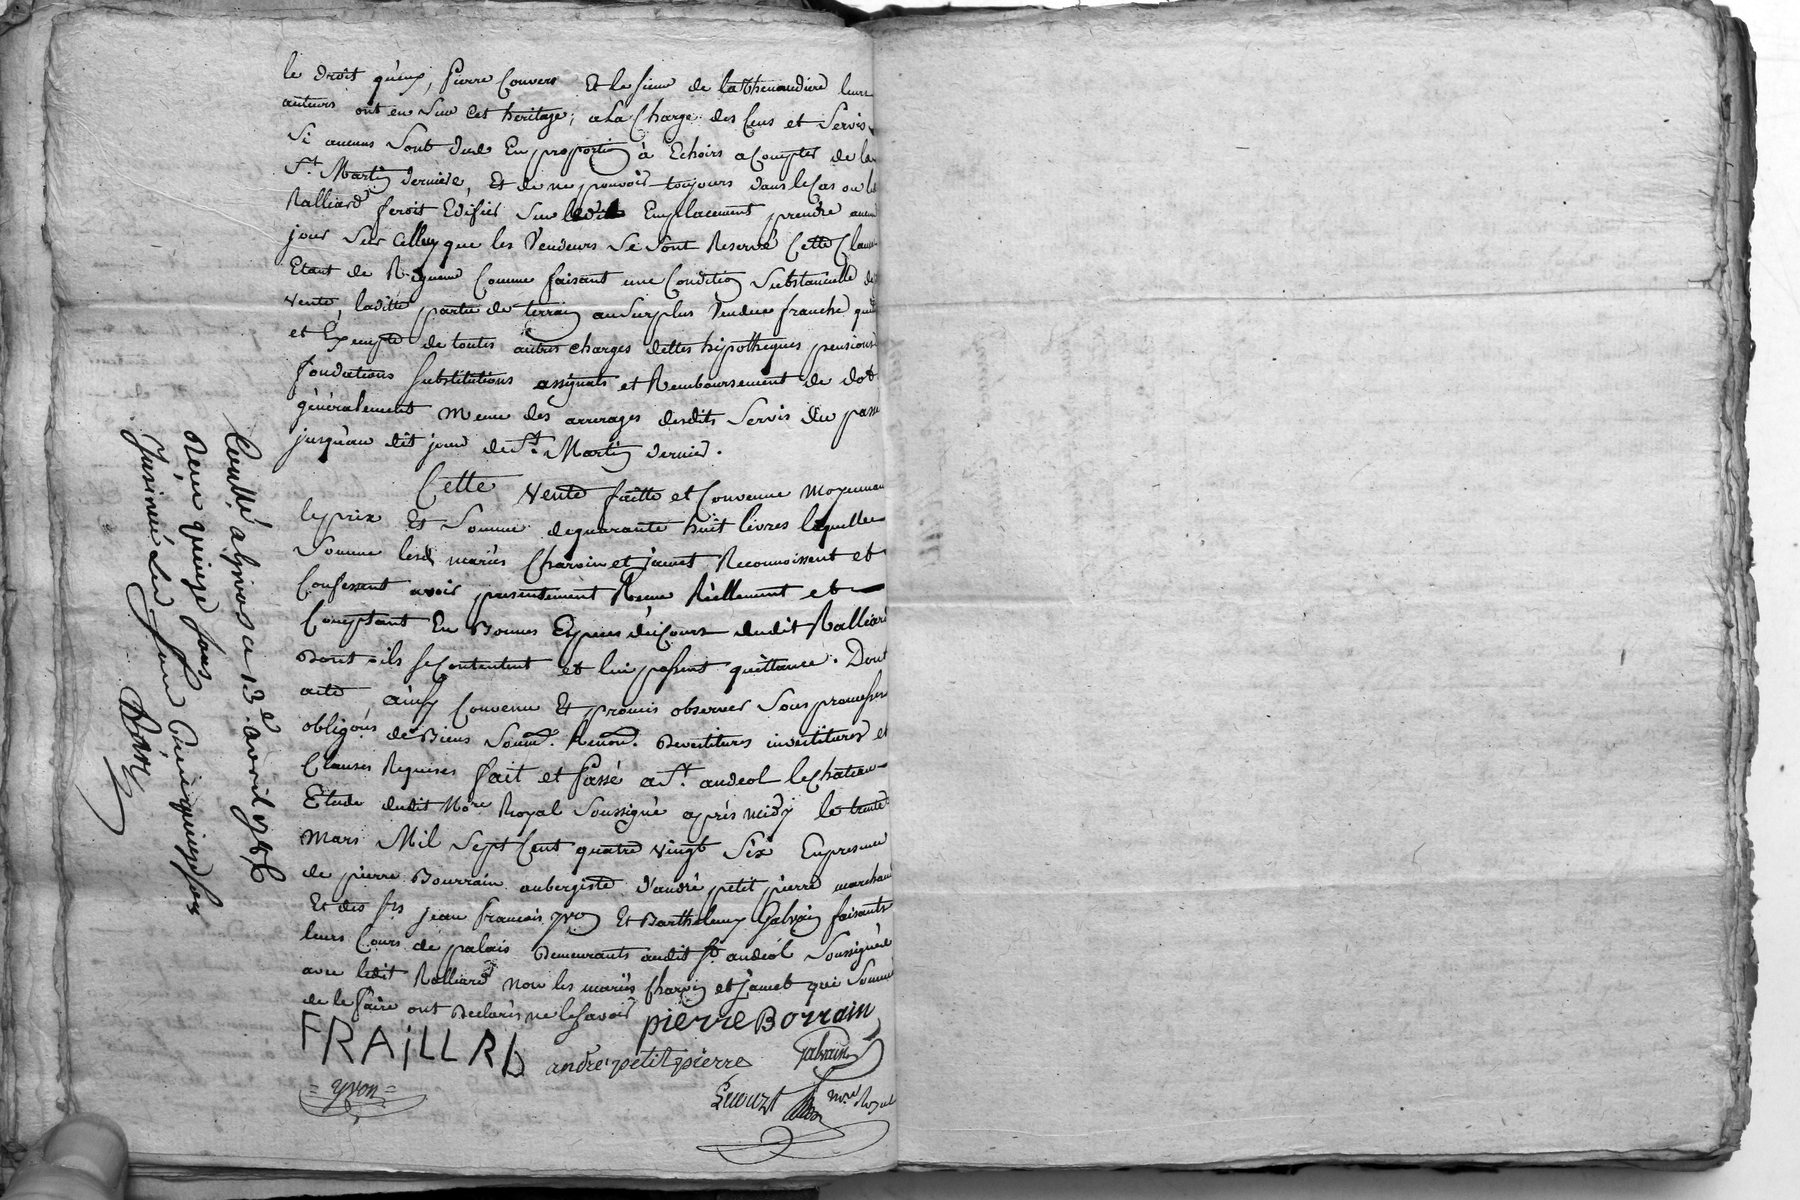 le droit qu'eux, Pierre Convers Et le sieur de la Thenaudiere leurs
auteurs ont eu sur cet heritage; a la Charge des Cens et Servis
Si aucuns Sont dus En proportion à Echoirs a Compter de la
St. Martin derniere, Et de ne pouvoir toujours dans le Cas ou led
Ralliard feroit Edifier Sur ledit Emplacement prendre aucun
jour Sur Celluy que les Vendeurs Se Sont Reservé Cette Clause
Etant de Rigueur Comme faisant une Condition Substancielle de
vente, laditte partie de terrain au Surplus Vendue franche quitte
et Exempte de toutes autres charges dettes hipotheques pensions
fondations Substitutions assignats et Remboursement de dot
généralement meme des arrerages desdits Servis du passé
jusqu'au dit jour de St. Martin dernier.
Cette Vente faitte et Convenue moyennant
le prix Et Somme de quarante huit livres laquelle
Somme lesd mariés Charvin et Jamet Reconnoissent et
Confessent avoir presentement Receu Réellement et
Comptant En Bonnes Especes du Cours dudit Ralliard
Dont ils se Contentent et lui passent quittance. Dont
acte, ainsy Convenu Et promis observer Sous promesses
obligons de Biens Soumn. Renonn. Devestitures investitures et
Clauses Requises fait et Passé a St. andeol le Chateau
Etude dudit Nore Royal Soussigné après midy le trente
Mars Mil Sept Cent quatre vingt Six En presence
de pierre Bourrain aubergiste d'andré petit pierre marchand
Et des srs jean francois yvon Et Barthelemy Galvain faisants
leurs Cours de palais Demeurants audit St. andeol Soussignés
avec ledit Ralliard non les mariés Charvin et Jamet qui Sommés
de le faire ont Declarés ne le Savoir pierre Borrain
FRAILLRD andre petit pierre Galvain
= yvon =
nore Royal
Contllé a givors ce 13e avril 1786
Reçu quinze sous